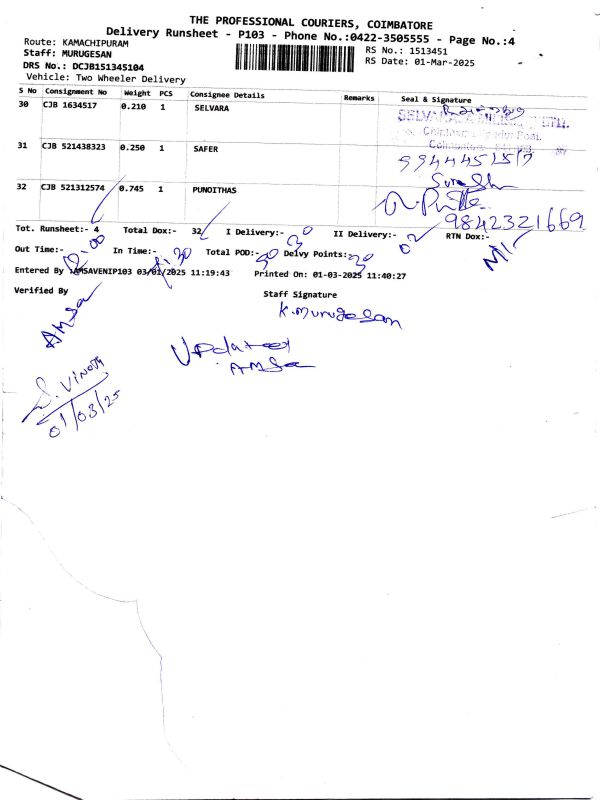 THE PROFESSIONAL COURIERS, COIMBATORE
Delivery Runsheet - P103 - Phone No.:0422-3505555 - Page No.:4
Route: KAMACHIPURAM
RS No.: 1513451
Staff: MURUGESAN
RS Date: 01-Mar-2025
DRS No.: DCJB151345104
Vehicle: Two Wheeler Delivery
S No Consignment No Weight PCS Consignee Details Remarks Seal & Signature
30 CJB 1634517 0.210 1 SELVARA
31 CJB 521438323 0.250 1 SAFER
9944451517
Suresh
32 CJB 521312574 0.745 1 PUNOITHAS
9842321669
Tot. Runsheet:- 4 Total Dox:- 32 I Delivery:- 30 II Delivery:- 02 RTN Dox:- Nil
Out Time:- 12.00 In Time:- 30 Total POD:- 30 Delvy Points:- 30
Entered By :AMSAVENIP103 03/01/2025 11:19:43 Printed On: 01-03-2025 11:40:27
Verified By
Staff Signature
AMSa
K.Murugesan
Updated
AMSa
S. Vinoth
01/03/25